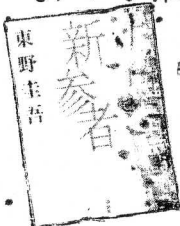 新参者
東野圭吾